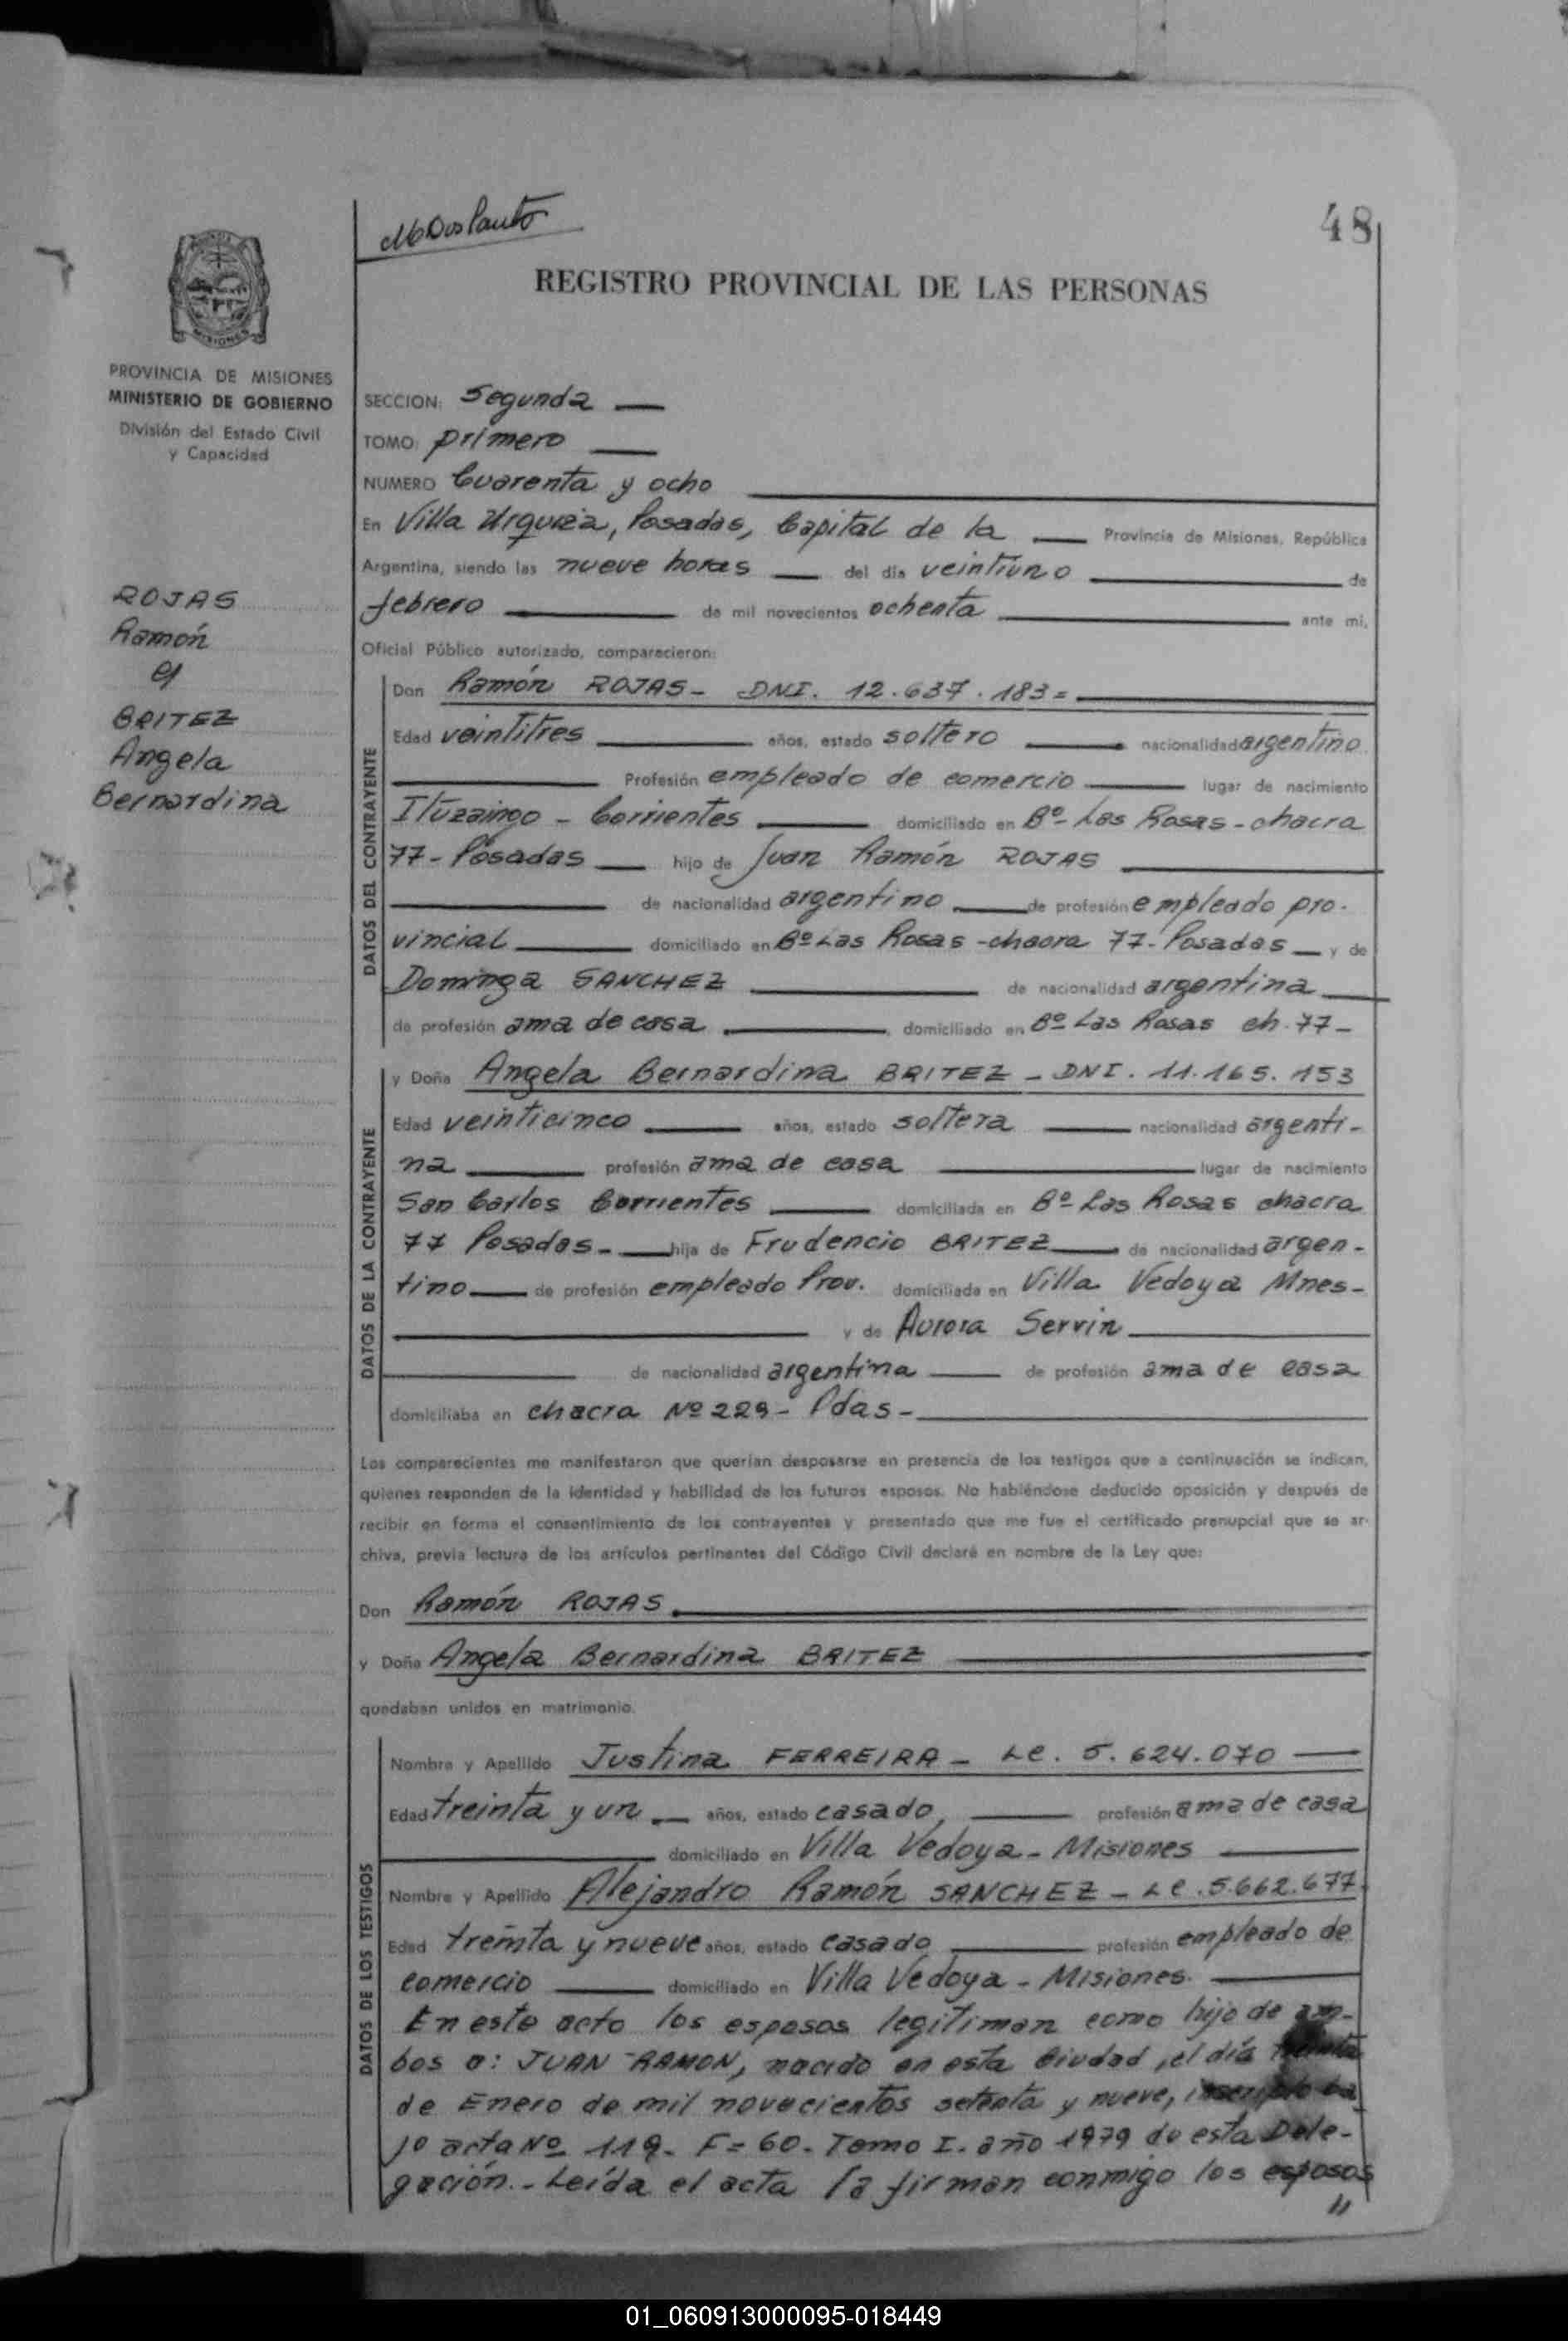 48
REGISTRO PROVINCIAL DE LAS PERSONAS
MISIONES
PROVINCIA DE MISIONES
MINISTERIO DE GOBIERNO
División del Estado Civil
y Capacidad
ROJAS
Ramón
y
BRITEZ
Angela
Bernardina
SECCION: Segunda —
TOMO: primero —
NUMERO Cuarenta y ocho
En Villa Urquiza, Posadas, Capital de la — Provincia de Misiones, República
Argentina, siendo las nueve horas — del día veintiuno — de
febrero — de mil novecientos ochenta — ante mí,
Oficial Público autorizado, comparecieron:
DATOS DEL CONTRAYENTE
Don Ramón ROJAS - DNI. 12.637.183=
Edad veintitres — años, estado soltero — nacionalidad argentino
— Profesión empleado de comercio — lugar de nacimiento
Ituzaingo - Corrientes — domiciliado en Bº- Las Rosas - chacra
77- Posadas — hijo de Juan Ramón ROJAS —
— de nacionalidad argentino — de profesión empleado pro-
vincial — domiciliado en Bº Las Rosas - chacra 77- Posadas — y de
Dominga SANCHEZ — de nacionalidad argentina —
de profesión ama de casa —, domiciliado en Bº Las Rosas ch. 77-
DATOS DE LA CONTRAYENTE
y Doña Angela Bernardina BRITEZ - DNI. 11.165.153
Edad veinticinco — años, estado soltera — nacionalidad argenti-
na — profesión ama de casa — lugar de nacimiento
San Carlos Corrientes — domiciliada en Bº- Las Rosas chacra
77 Posadas.- — hija de Frudencio BRITEZ — de nacionalidad argen-
tino — de profesión empleado Prov. domiciliada en Villa Vedoya Mnes-
— y de Aurora Servin —
— de nacionalidad argentina — de profesión ama de casa
domiciliaba en chacra Nº 229- Pdas- —
Los comparecientes me manifestaron que querían desposarse en presencia de los testigos que a continuación se indican,
quienes responden de la identidad y habilidad de los futuros esposos. No habiéndose deducido oposición y después de
recibir en forma el consentimiento de los contrayentes y presentado que me fue el certificado prenupcial que se ar-
chiva, previa lectura de los artículos pertinentes del Código Civil declaré en nombre de la Ley que:
Don Ramón ROJAS.
y Doña Angela Bernardina BRITEZ
quedaban unidos en matrimonio.
DATOS DE LOS TESTIGOS
Nombre y Apellido Justina FERREIRA - Lc. 5.624.070 —
Edad treinta y un — años, estado casado, — profesión ama de casa
— domiciliado en Villa Vedoya - Misiones —
Nombre y Apellido Alejandro Ramón SANCHEZ - Le. 5.662.677.
Edad treinta y nueve años, estado casado — profesión empleado de
comercio — domiciliado en Villa Vedoya - Misiones. —
En este acto los esposos legitiman como hijo de am-
bos a: JUAN RAMON, nacido en esta ciudad, el día treinta
de Enero de mil novecientos setenta y nueve, inscripto ba
jo acta Nº 119- F= 60- Tomo I. año 1979 de esta Dele-
gación.- Leída el acta la firman conmigo los esposos
//
01_060913000095-018449